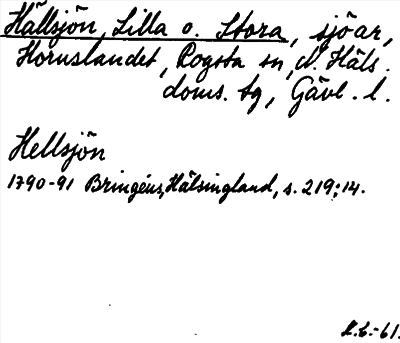 Hällsjön, Lilla o. Stora, sjöar,
Hornslandet, Rogsta sn, N. Häls.
doms. tg, Gävl. l.
Hellsjön
1790-91 Bringéus, Hälsingland, s. 219; 14.
-61.